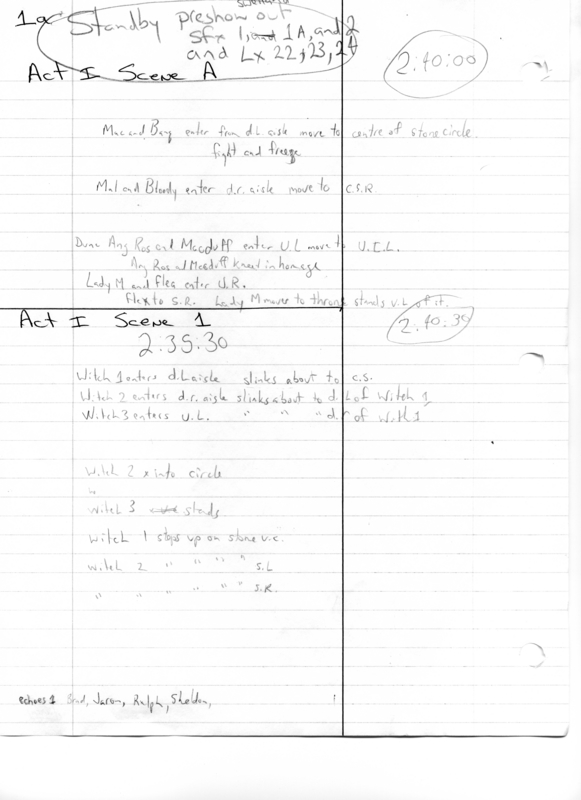 1a Standby preshow out
sfx 1, and 1A, and 2
and Lx 22, 23, 24
2:40:00
Act I Scene A
Mac and Banq enter from d.L aisle move to centre of stone circle.
fight and freeze
Mal and Bloody enter d.r. aisle move to C.S.R
Dunc Ang Ros and Macduff enter U.L move to U.C.L.
Ang Ros and Macduff kneel in homage
Lady M and Flea enter U.R.
Flex to S.R. Lady M moves to throne stands u.L of it.
Act I Scene 1
2:40:30
2:35:30
Witch 1 enters d.L aisle slinks about to c.s.
Witch 2 enters d.r. aisle slinks about to d.L of Witch 1
Witch 3 enters U.L. " " " d.r of Witch 1
Witch 2 x into circle
Witch 3 stands
Witch 1 stops up on stone u.c.
Witch 2 " " " " S.L
" " " " " " S.R.
echoes 1 Brad, Jason, Ralph, Sheldon,